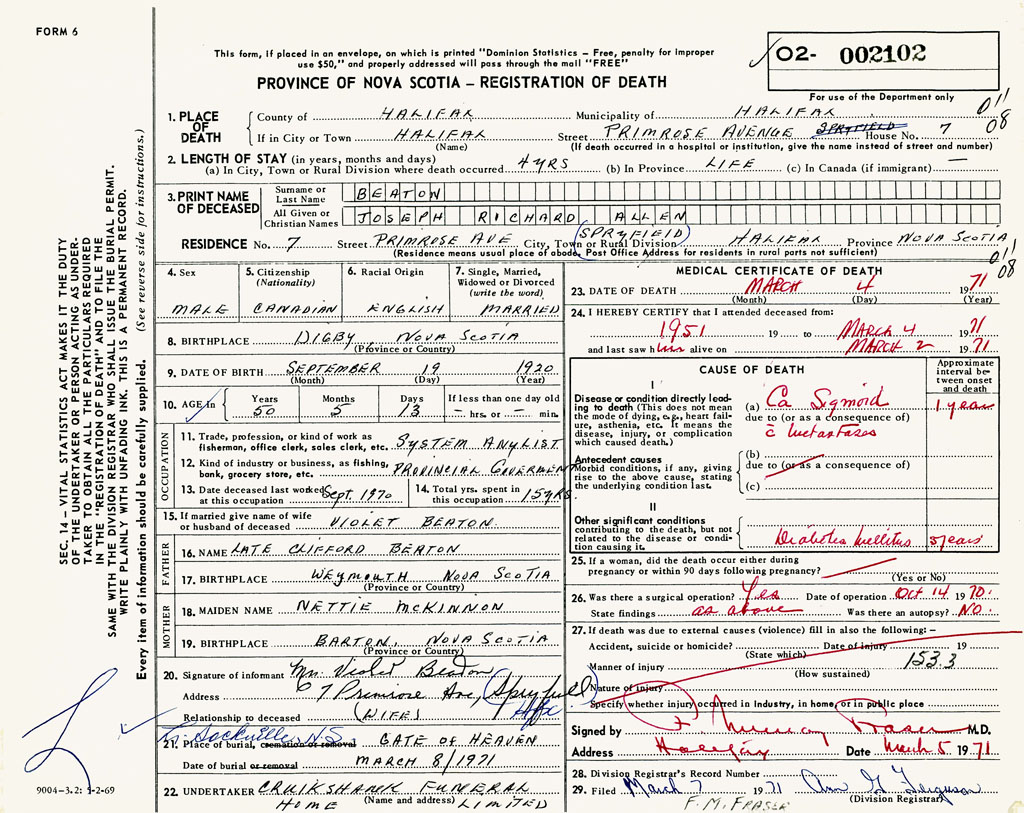 FORM 6
This form, if placed in an envelope, on which is printed "Dominion Statistics – Free, penalty for improper
use $50," and properly addressed will pass through the mail "FREE"
PROVINCE OF NOVA SCOTIA – REGISTRATION OF DEATH
O2- 002102
For use of the Department only
011
08
1. PLACE OF DEATH
County of HALIFAX Municipality of HALIFAX
If in City or Town HALIFAX Street PRIMROSE AVENGE SPRYFIELD House No. 7
(Name) (If death occurred in a hospital or institution, give the name instead of street and number)
2. LENGTH OF STAY (in years, months and days)
(a) In City, Town or Rural Division where death occurred 4 YRS (b) In Province LIFE (c) In Canada (if immigrant) —
3. PRINT NAME OF DECEASED
Surname or Last Name BEATON
All Given or Christian Names JOSEPH RICHARD ALLEN
(SPRYFIELD)
RESIDENCE No. 7 Street PRIMROSE AVE City, Town or Rural Division HALIFAX Province NOVA SCOTIA
(Residence means usual place of abode. Post Office Address for residents in rural parts not sufficient)
011
08
4. Sex MALE
5. Citizenship (Nationality) CANADIAN
6. Racial Origin ENGLISH
7. Single, Married, Widowed or Divorced (write the word) MARRIED
8. BIRTHPLACE DIGBY NOVA SCOTIA
(Province or Country)
9. DATE OF BIRTH SEPTEMBER 19 1920
(Month) (Day) (Year)
10. AGE in Years 50 Months 5 Days 13 If less than one day old — hrs. or — min.
OCCUPATION
11. Trade, profession, or kind of work as
fishermen, office clerk, sales clerk, etc. SYSTEM ANYLIST
12. Kind of industry or business, as fishing,
bank, grocery store, etc. PROVINCIAL GOVERMENT
13. Date deceased last worked
at this occupation Sept. 1970
14. Total yrs. spent in
this occupation 15 YRS
15. If married give name of wife
or husband of deceased VIOLET BEATON
FATHER
16. NAME LATE CLIFFORD BEATON
17. BIRTHPLACE WEYMOUTH NOVA SCOTIA
(Province or Country)
MOTHER
18. MAIDEN NAME NETTIE McKINNON
19. BIRTHPLACE BARTON, NOVA SCOTIA
(Province or Country)
20. Signature of informant Mrs Violet Beaton
Address 67 Primrose Ave, (Spryfield)
Hfx
Relationship to deceased (WIFE)
Sackville, N.S.
21. Place of burial, cremation or removal GATE OF HEAVEN
Date of burial or removal MARCH 8/1971
22. UNDERTAKER CRUIKSHANK FUNERAL
(Name and address)
HOME LIMITED
MEDICAL CERTIFICATE OF DEATH
23. DATE OF DEATH MARCH 4 1971
(Month) (Day) (Year)
24. I HEREBY CERTIFY that I attended deceased from:
1951 19 to MARCH 4 1971
and last saw him alive on MARCH 2 1971
CAUSE OF DEATH
Approximate interval between onset and death
I
Disease or condition directly leading to death (This does not mean the mode of dying, e.g., heart failure, asthenia, etc. It means the disease, injury, or complication which caused death.)
(a) Ca Sigmoid 1 year
due to (or as a consequence of)
c̄ metastases
Antecedent causes
Morbid conditions, if any, giving rise to the above cause, stating the underlying condition last.
(b)
due to (or as a consequence of)
(c)
II
Other significant conditions
contributing to the death, but not related to the disease or condition causing it.
Diabetes Mellitus 5 years
25. If a woman, did the death occur either during
pregnancy or within 90 days following pregnancy?
(Yes or No)
26. Was there a surgical operation? Yes Date of operation Oct 14 1970.
State findings as above Was there an autopsy? NO.
27. If death was due to external causes (violence) fill in also the following:–
Accident, suicide or homicide? Date of injury 19
(State which)
Manner of injury 153.3
(How sustained)
Nature of injury
Specify whether injury occurred in industry, in home, or in public place
Signed by F Murray Fraser M.D.
Address Halifax Date March 5 1971
28. Division Registrar's Record Number
29. Filed March 7 1971 Ann G Ferguson
(Division Registrar)
F. M. FRASER
SEC. 14 – VITAL STATISTICS ACT MAKES IT THE DUTY
OF THE UNDERTAKER OR PERSON ACTING AS UNDER-
TAKER TO OBTAIN ALL THE PARTICULARS REQUIRED
IN THE "REGISTRATION OF DEATH" AND TO FILE THE
SAME WITH THE DIVISION REGISTRAR WHO SHALL ISSUE THE BURIAL PERMIT.
WRITE PLAINLY WITH UNFADING INK. THIS IS A PERMANENT RECORD.
Every item of information should be carefully supplied. (See reverse side for instructions.)
9004-3.2: 9-2-69